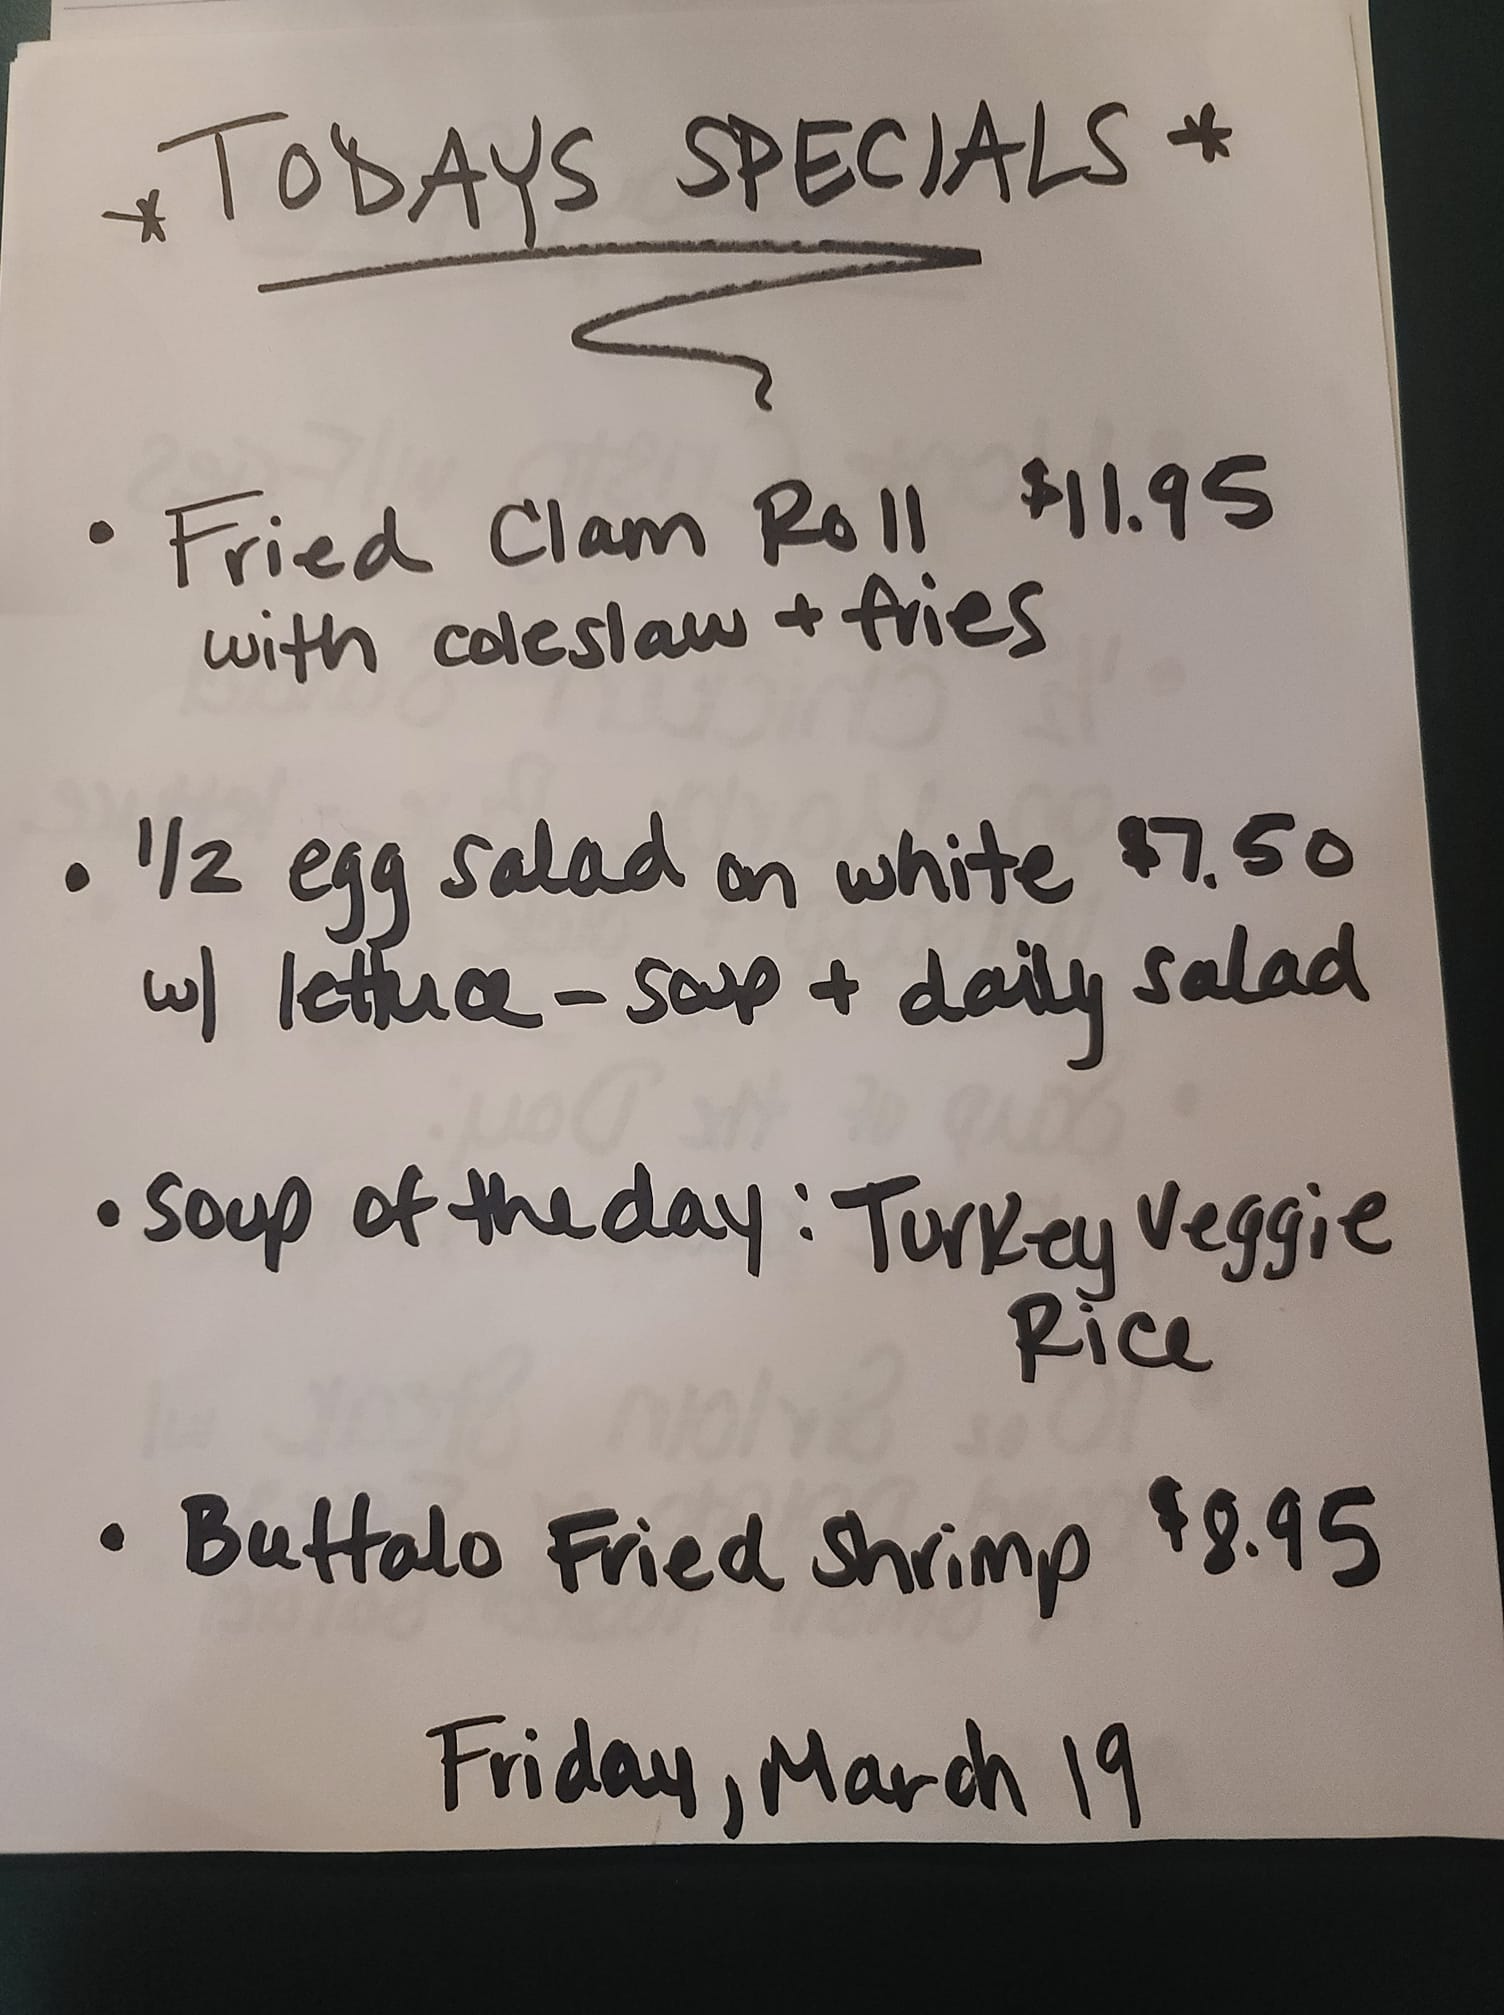 * TODAYS SPECIALS *
• Fried Clam Roll $11.95
with coleslaw + fries
• 1/2 egg salad on white $7.50
w/ lettuce - soup + daily salad
• Soup of the day: Turkey Veggie
Rice
• Buffalo Fried Shrimp $8.95
Friday, March 19